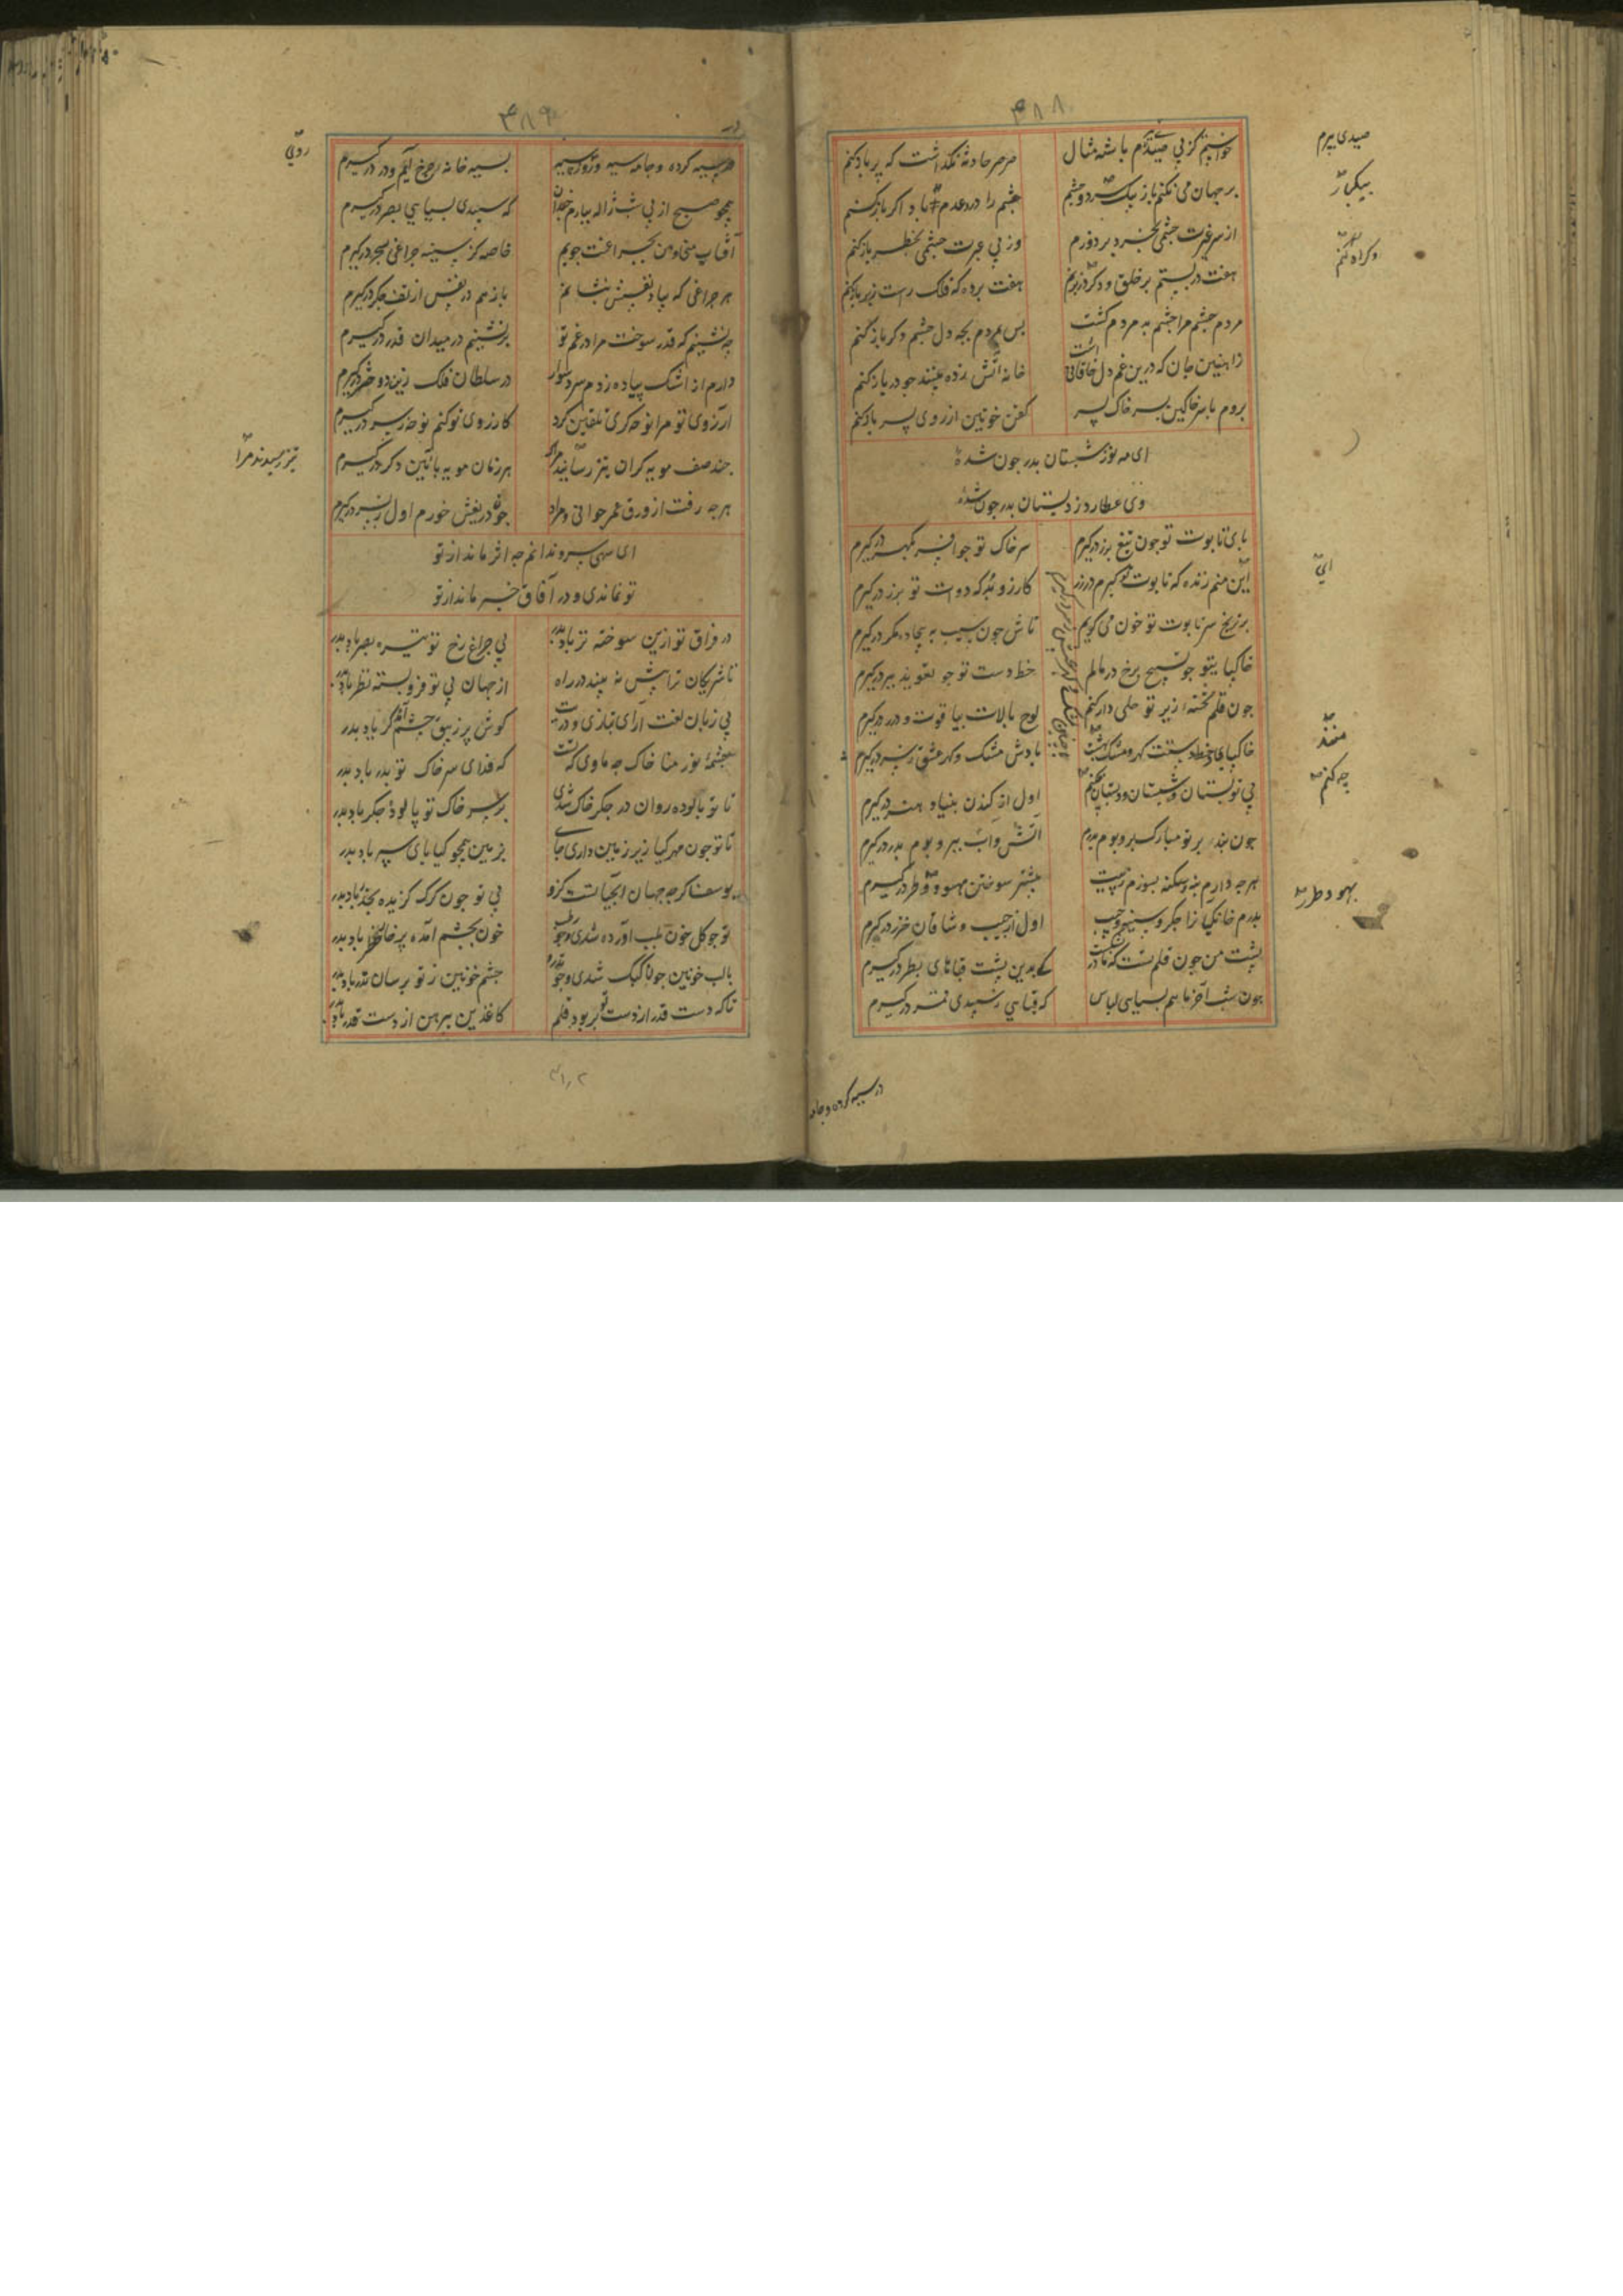 ۴۸۸
خواستم کز پی صیدی بپرم باشه مثال
صرصر حادثه نگذاشت که پر باز کنم
بر جهان می نکنم باز بیک سر دو چشم
چشم را در عدم اگر باز کنم
از سر غیرت چشمی بخرد بردوزم
وز پی عبرت چشمی بخطر باز کنم
هفت در بستم بر خلق و دکر در نزنم
هفت پرده که فلک راست زبر باز کنم
مردم چشم مرا چشم بد مردم کشت
پس بمردم بچه دل چشم دکر باز کنم
زاهنین جان که درین غم دل خاقانی راست
خانه آتش زده بینند چو در باز کنم
بروم با سر خاکین بسر خاک پسر
کفن خونین از روی پسر باز کنم
ای مه نو ز شبستان پدر چون شدهٔ
وی عطارد ز دبستان پدر چون شدهٔ
پای تابوت تو چون تیغ بزر درکیرم
سر خاک تو چو افسر بکهر درکیرم
این منم زنده که تابوت تو کیرم در زر
کارزو بد که دوات تو بزر درکیرم
بر ترنج سر تابوت تو خون می کویم
تاش چون سیب به بیجاده مکر درکیرم
خاکپای تو چو تسبیح برخ در مالم
خط دست تو چو تعویذ ببر درکیرم
چون قلم تخته زیر تو حلی دار کنم
لوح بالات بیاقوت و درر درکیرم
خاکپای و خط دستت کهر و مشک منست
بادش مشک و کهر عشق ز سر درکیرم
بی تو بستان و شبستان و دبستان چه کنم
اول از کندن بنیاد هنر درکیرم
چون نبد بر تو مبارک بر و بوم پدرم
آتش و آب ببر و بوم پدر درکیرم
هر چه دارم بنه و سکنه بسوزم ز پست
بیشتر سوختن بهو و طزر درکیرم
بدرم خانکیانرا جکر و سینه و جیب
اول از جیب و شاقان خزر درکیرم
پشت من چون قلم تست که
که بدین پشت قباهای بطر درکیرم
چون شب آخر ماهم بسیاهی لباس
که قباهی ز سپیدی قمر درکیرم
صیدی بپرم
بیکبار
دکر راه کنم
ای
منند
چه کنم
بهو و طزر
در سیه کرده و جامه
۴۸۹
در سیه کرده و جامه سیه و روی سیه
بسیه خانه چرخ آیم و در درکیرم
همچو صبح از پی شب ژاله ببارم چندان
که سپیدی بسیاهی بصر درکیرم
آفتاب منی و من بچراغت جویم
خاصه کز سینه چراغی بسحر درکیرم
هر چراغی که بباد نفسش بنشانم
باز هم در نفس از تف جکر درکیرم
چه نشینم که قدر سوخت مرا در غم تو
بر نشینم در میدان قدر درکیرم
دارم از اشک پیاده ز دم سرد سوار
در سلطان فلک زین دو حشر درکیرم
آرزوی تو مرا نوحه کری تلقین کرد
کارزوی تو کنم نوحه ز سر درکیرم
چند صف مویه کران نیز رسانید مرا
هر زمان مویه بآئین دکر درکیرم
هر چه رفت از ورق عمر جوانی و مراد
چون دریغش خورم اول ز پسر درکیرم
ای سهی سرو ندانم چه اثر ماند از تو
تو نماندی و در آفاق خبر ماند از تو
در فراق تو ازین سوخته تر باد پدر
بی چراغ رخ تو تیره بصر باد پدر
تا شریکان ترا پیش نه بیند در راه
از جهان بی تو فروبسته نظر باد پدر
بی زبان لغت آرای بتازی و دریت
کوش پر زیبق و چشم آمده کر باد پدر
چشمهٔ نور منا خاک چه ماوی که تست
که فدای سر خاک تو پدر باد پدر
تا تو پالوده روان در جکر خاک شدی
بر سر خاک تو پالوده جکر باد پدر
تا تو چون مهرکیا زیر زمین داری جای
بر زمین همچو کیا پای سپر باد پدر
یوسفا کرچه جهان آب حیاتست کزو
بی تو چون کرک کزیده بحذر باد پدر
تو چو کل خون بلب آورده شدی و چو رطب
خون بچشم آمده پر خار خطر باد پدر
با لب خونین چون کبک شدی و چو تذرو
چشم خونین ز تو برسان تذرو باد پدر
تا که دست قدر از دست تو بربود قلم
کاغذین پیرهن از دست قدر باد پدر
روی
نیز رسیدند مرا